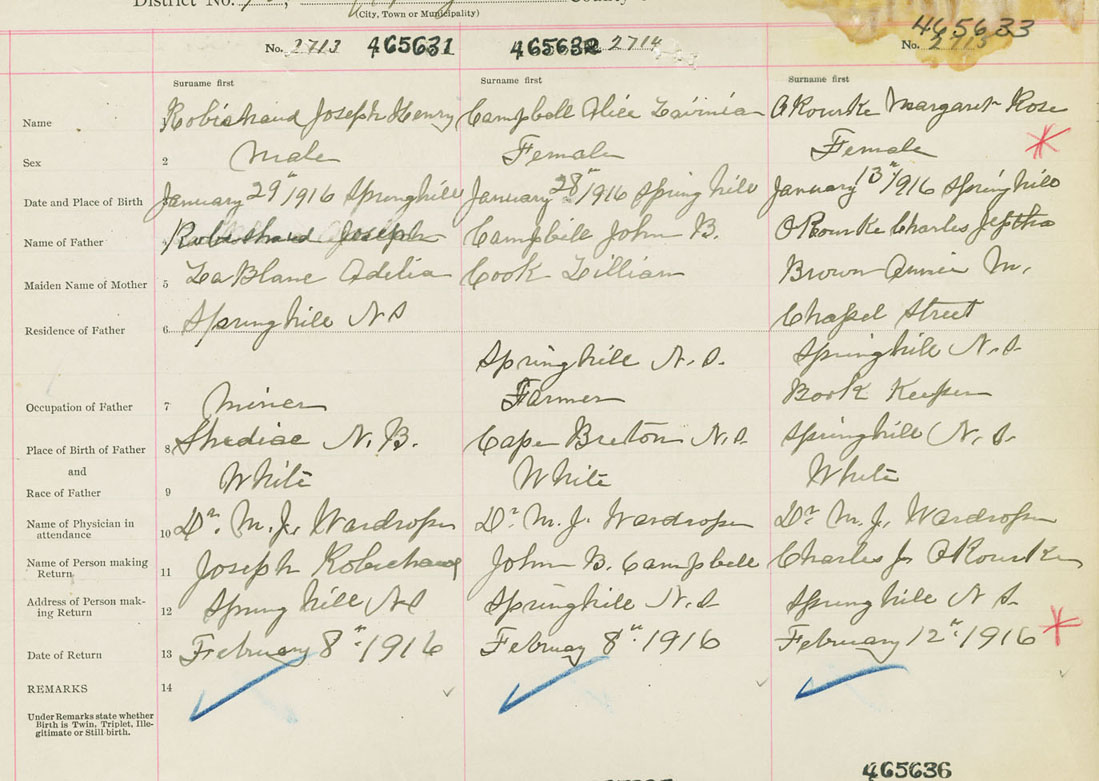 District No.
(City, Town or Municipality)
No. 2713 465631 465632 2714 465633
No. 2715
Surname first Surname first Surname first
Name Robichaud Joseph Henry Campbell Alice O'Rourke Margaret Rose
Sex 2 Male Female Female
Date and Place of Birth January 29" 1916 Springhill January 28" 1916 Spring hill January 13" 1916 Springhill
Name of Father Robichaud Joseph Campbell John B. O'Rourke Charles Jeptha
Maiden Name of Mother 5 LaBlanc Adelia Cook Lillian Brown Annie M.
Residence of Father 6 Springhill N S Chapel Street
Springhill N. S. Springhill N. S.
Occupation of Father 7 Miner Farmer Book Keeper
Place of Birth of Father 8 Shediac N. B. Cape Breton N. S. Springhill N. S.
and
Race of Father 9 White White White
Name of Physician in attendance 10 Dr. M. J. Wardroper Dr. M. J. Wardroper Dr. M. J. Wardroper
Name of Person making Return 11 Joseph Robichaud John B. Campbell Charles J. O'Rourke
Address of Person making Return 12 Spring hill N S Springhill N. S Springhill N S.
Date of Return 13 February 8" 1916 February 8" 1916 February 12" 1916
REMARKS 14
Under Remarks state whether
Birth is Twin, Triplet, Ille-
gitimate or Still-birth.
465636